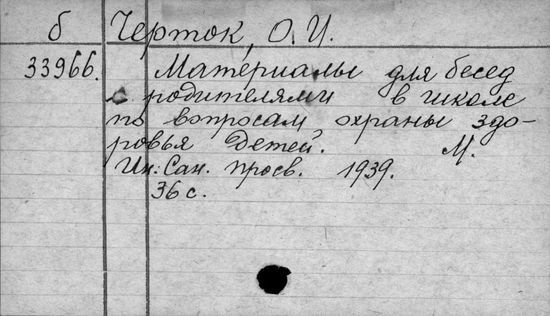 б Черток, О. И.
33966. Материалы для бесед
с родителями в школе
по вопросам охраны здо-
ровья детей. М.
Ин. Сан. просв. 1939.
36 с.